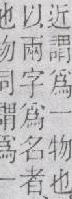 近謂爲一物也
以兩字爲名者
也物同謂爲一